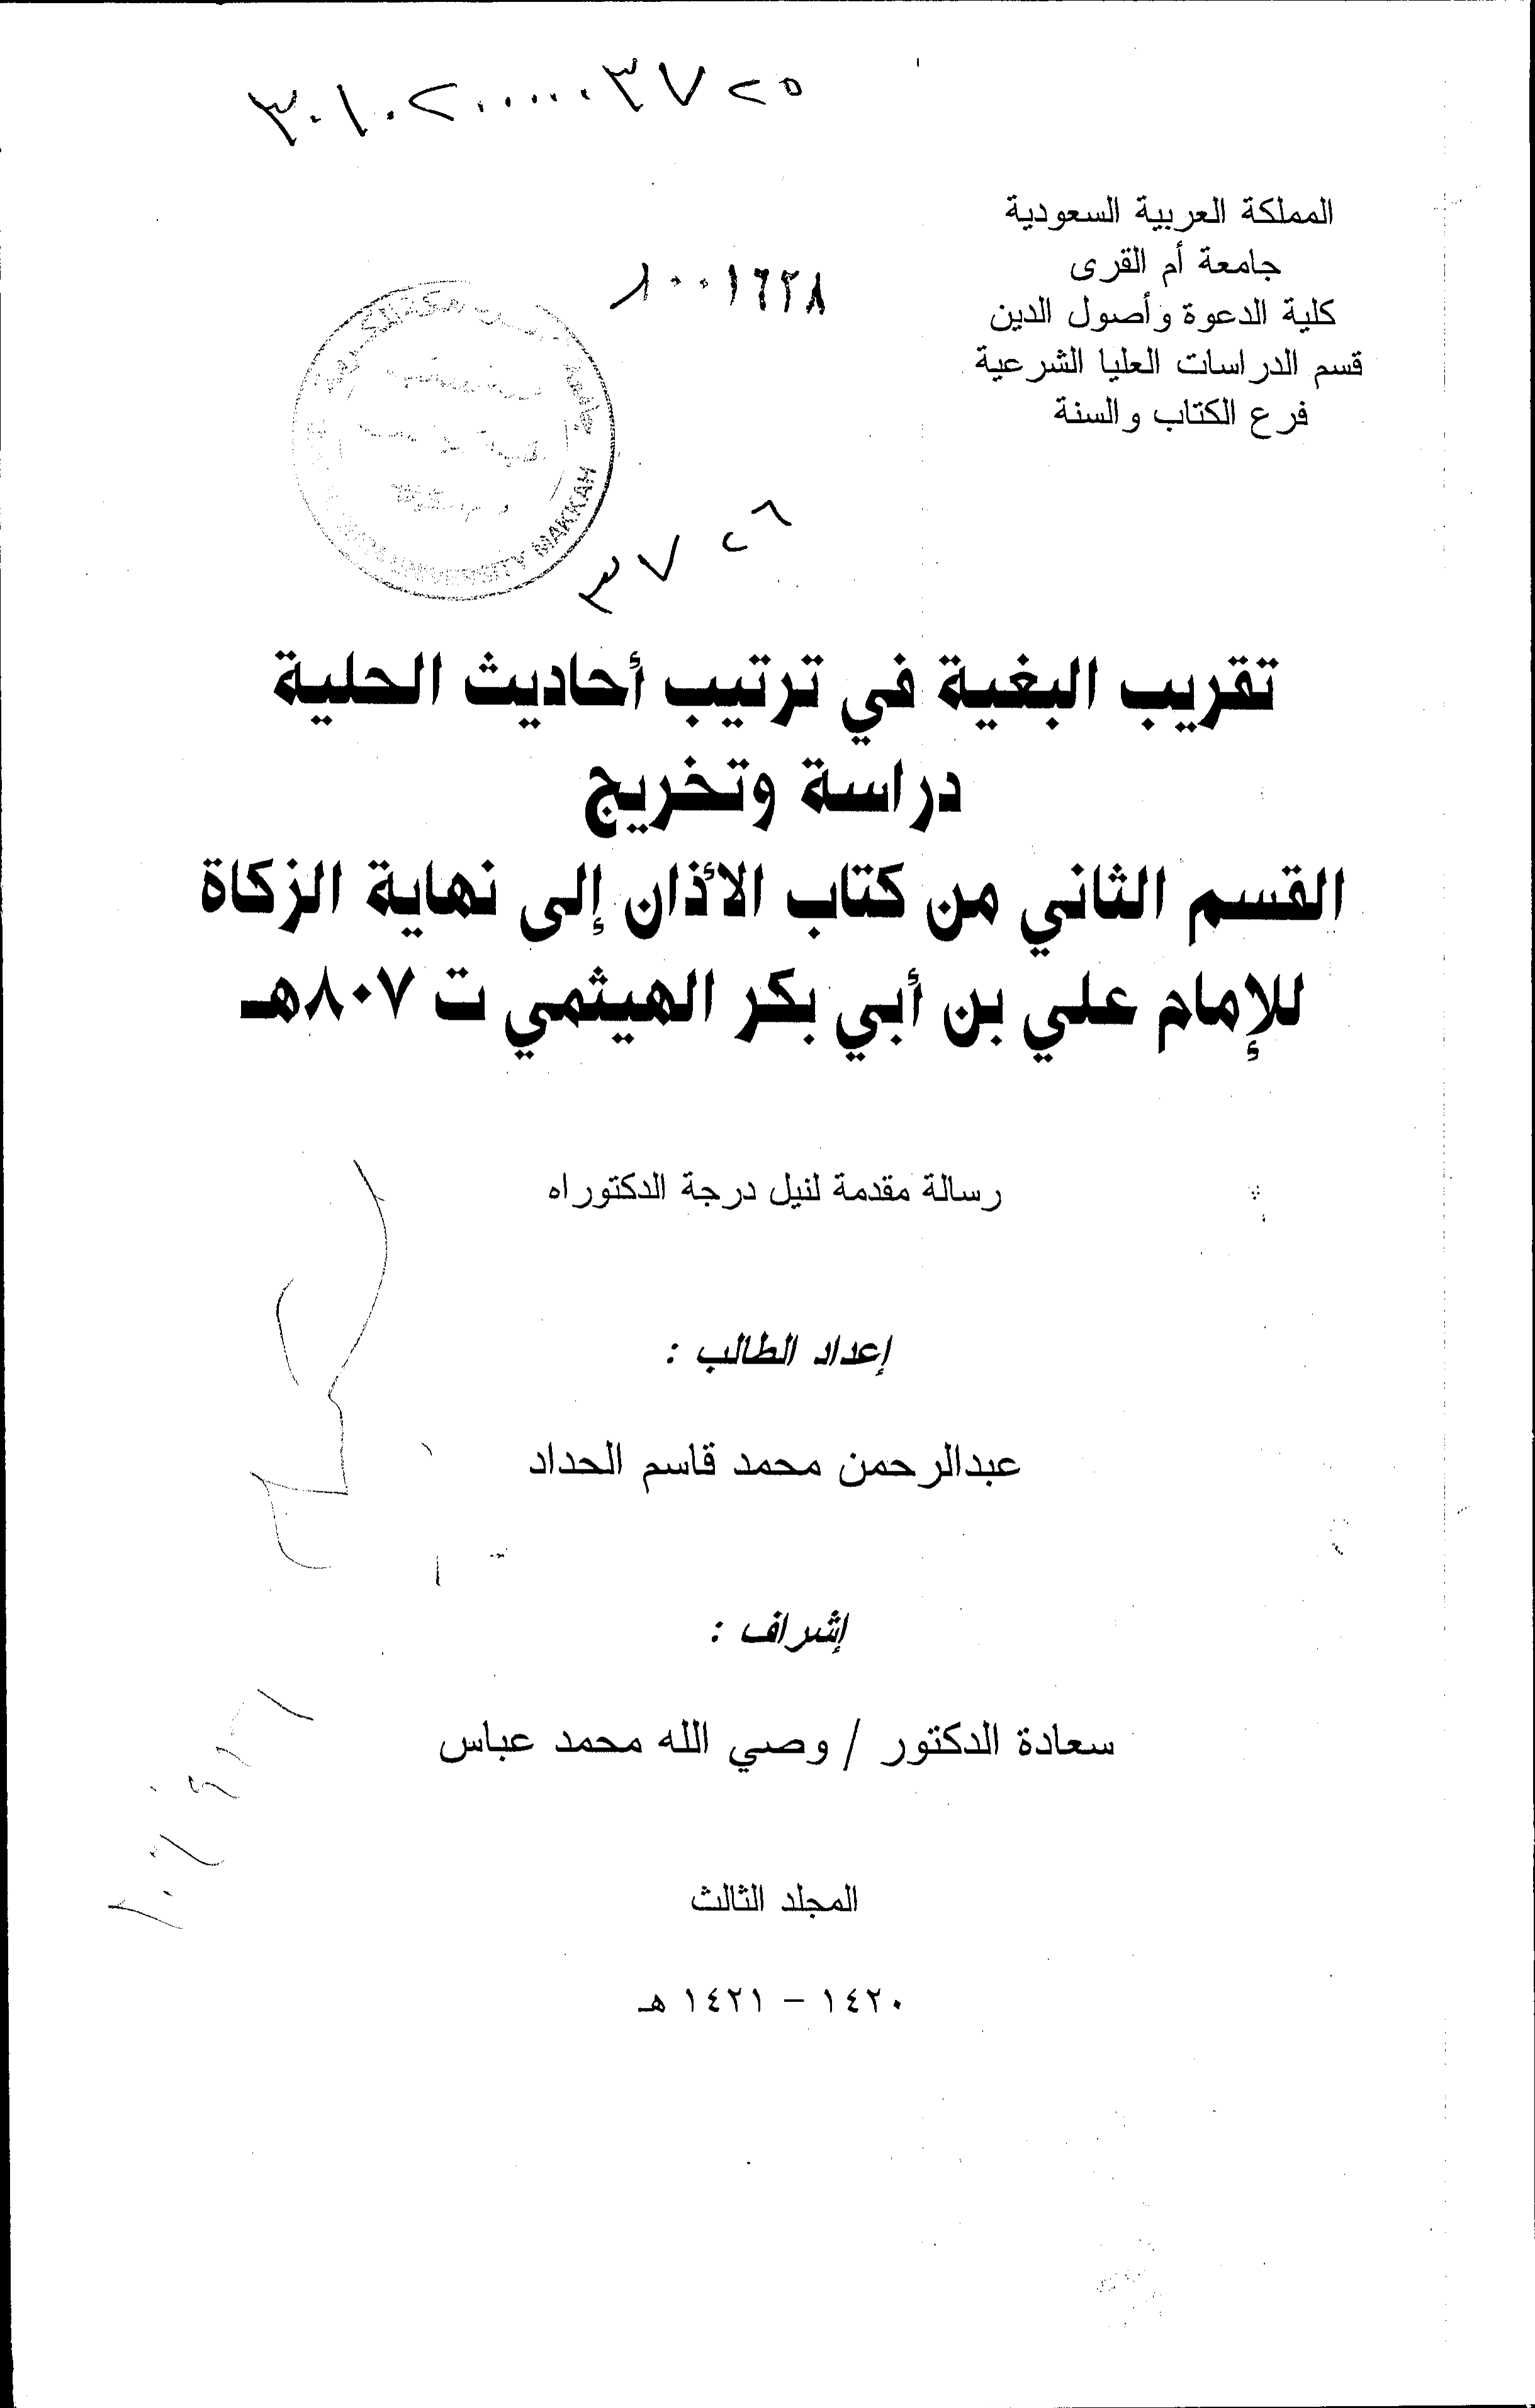 ٣٠١٠٢٠٠٠٠٠٣٧٢٥
المملكة العربية السعودية
جامعة أم القرى
كلية الدعوة وأصول الدين
قسم الدراسات العليا الشرعية
فرع الكتاب والسنة
١٠٠١٦٢٨
جامعة
UNIVERSITY MAKKAH
٣٧٢٦
تقريب البغية في ترتيب أحاديث الحلية
دراسة وتخريج
القسم الثاني من كتاب الأذان إلى نهاية الزكاة
للإمام علي بن أبي بكر الهيثمي ت ٨٠٧هـ
رسالة مقدمة لنيل درجة الدكتوراه
إعداد الطالب :
عبدالرحمن محمد قاسم الحداد
إشراف :
سعادة الدكتور / وصي الله محمد عباس
المجلد الثالث
١٤٢٠ - ١٤٢١ هـ